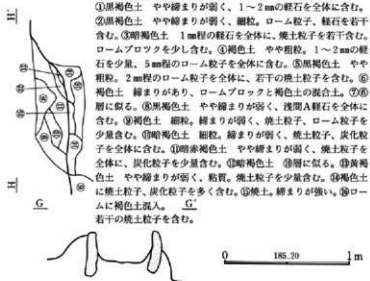 ①黒褐色土　やや締まりが弱く、1～2㎜の軽石を全体に含
む。②黒褐色土　やや締まりが弱く、細粒。ローム粒子、軽石を若干
含む。③暗褐色土　1㎜程の軽石を全体に、焼土粒子を若干含む。
ロームブロックを少し含む。④褐色土　やや粗粒。1～2㎜の軽
石を少量、5㎜程のローム粒子を全体に含む。⑤黒褐色土　やや
粗粒。2㎜程のローム粒子を全体に、若干の焼土粒子を含む。⑥
褐色土　締まりがあり、ロームブロックと褐色土の混合土。⑦⑥
層に似る。⑧黒褐色土　やや締まりが弱く、浅間A軽石を全体に
含む。⑨褐色土　細粒。締まりが弱く、焼土粒子、ローム粒子を
少量含む。⑩暗褐色土　細粒。締まりが弱く、焼土粒子、炭化粒
子を全体に含む。⑪暗赤褐色土　やや締まりが弱く、焼土粒子を
全体に、炭化粒子を少量含む。⑫暗褐色土　⑩層に似る。⑬黄褐
色土　やや締まりが弱く、粘質。焼土粒子を少量含む。⑭褐色土
に焼土粒子、炭化粒子を多く含む。⑮焼土。締まりが強い。⑯ロー
ムに褐色土混入。
若干の焼土粒子を含む。
H'
H
G
G'
0
185.20
1m